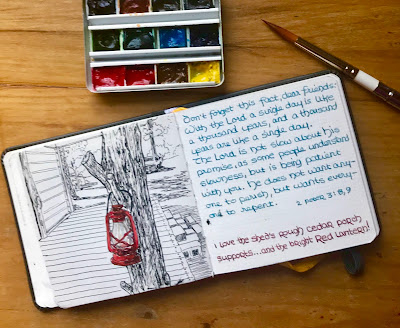 Don't forget this fact, dear friends:
With the Lord a single day is like
a thousand years, and a thousand
years are like a single day.
The Lord is not slow about his
promise, as some people understand
slowness, but is being patient
with you. He does not want any-
one to perish, but wants every-
one to repent. 2 Peter 3:8,9
I love the shed's rough cedar porch
supports...and the bright Red Lantern!